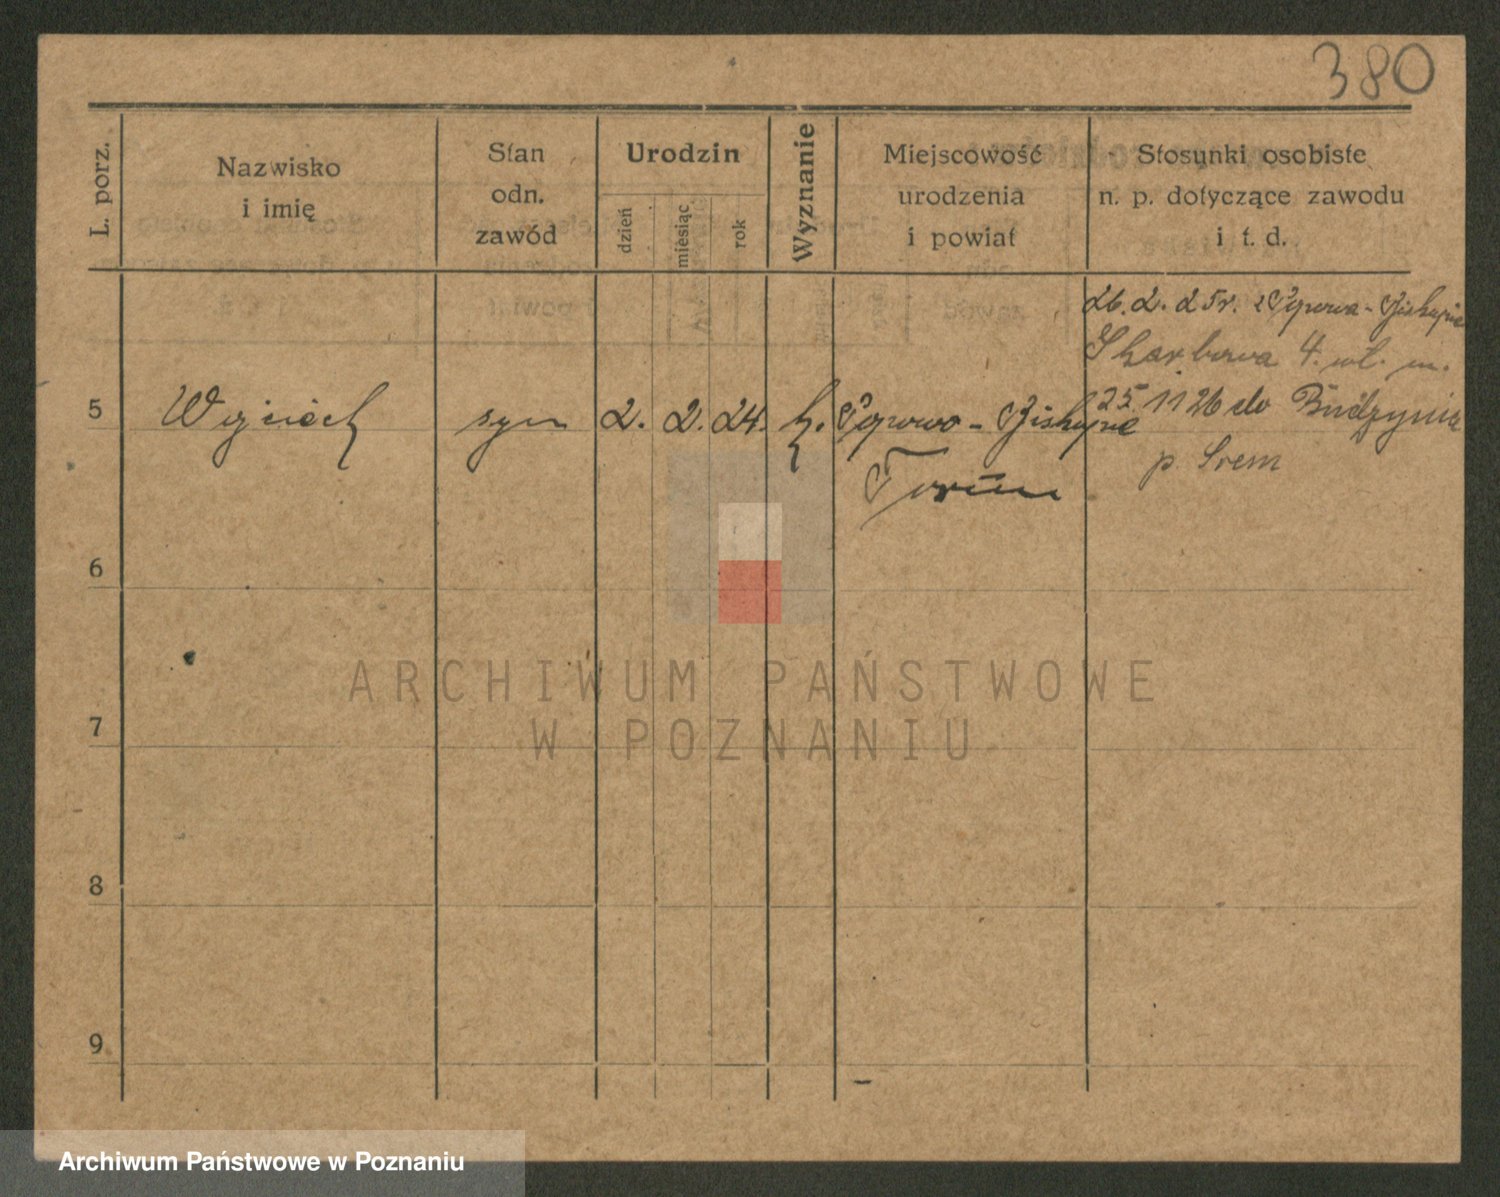 380
L. porz.
Nazwisko
i imię
Stan
odn.
zawód
Urodzin
dzień
miesiąc
rok
Wyznanie
Miejscowość
urodzenia
i powiat
Stosunki osobiste
n. p. dotyczące zawodu
i t. d.
26. 2. 25r. z Papowa-Biskupie
Skarbowa 4. wł. m.
5 Wojciech syn 2. 2. 24. k. Papowo-Biskupie 25 11 26 do Budzynia
Toruń p. Śrem
6
7
8
9
ARCHIWUM PAŃSTWOWE
W POZNANIU
Archiwum Państwowe w Poznaniu